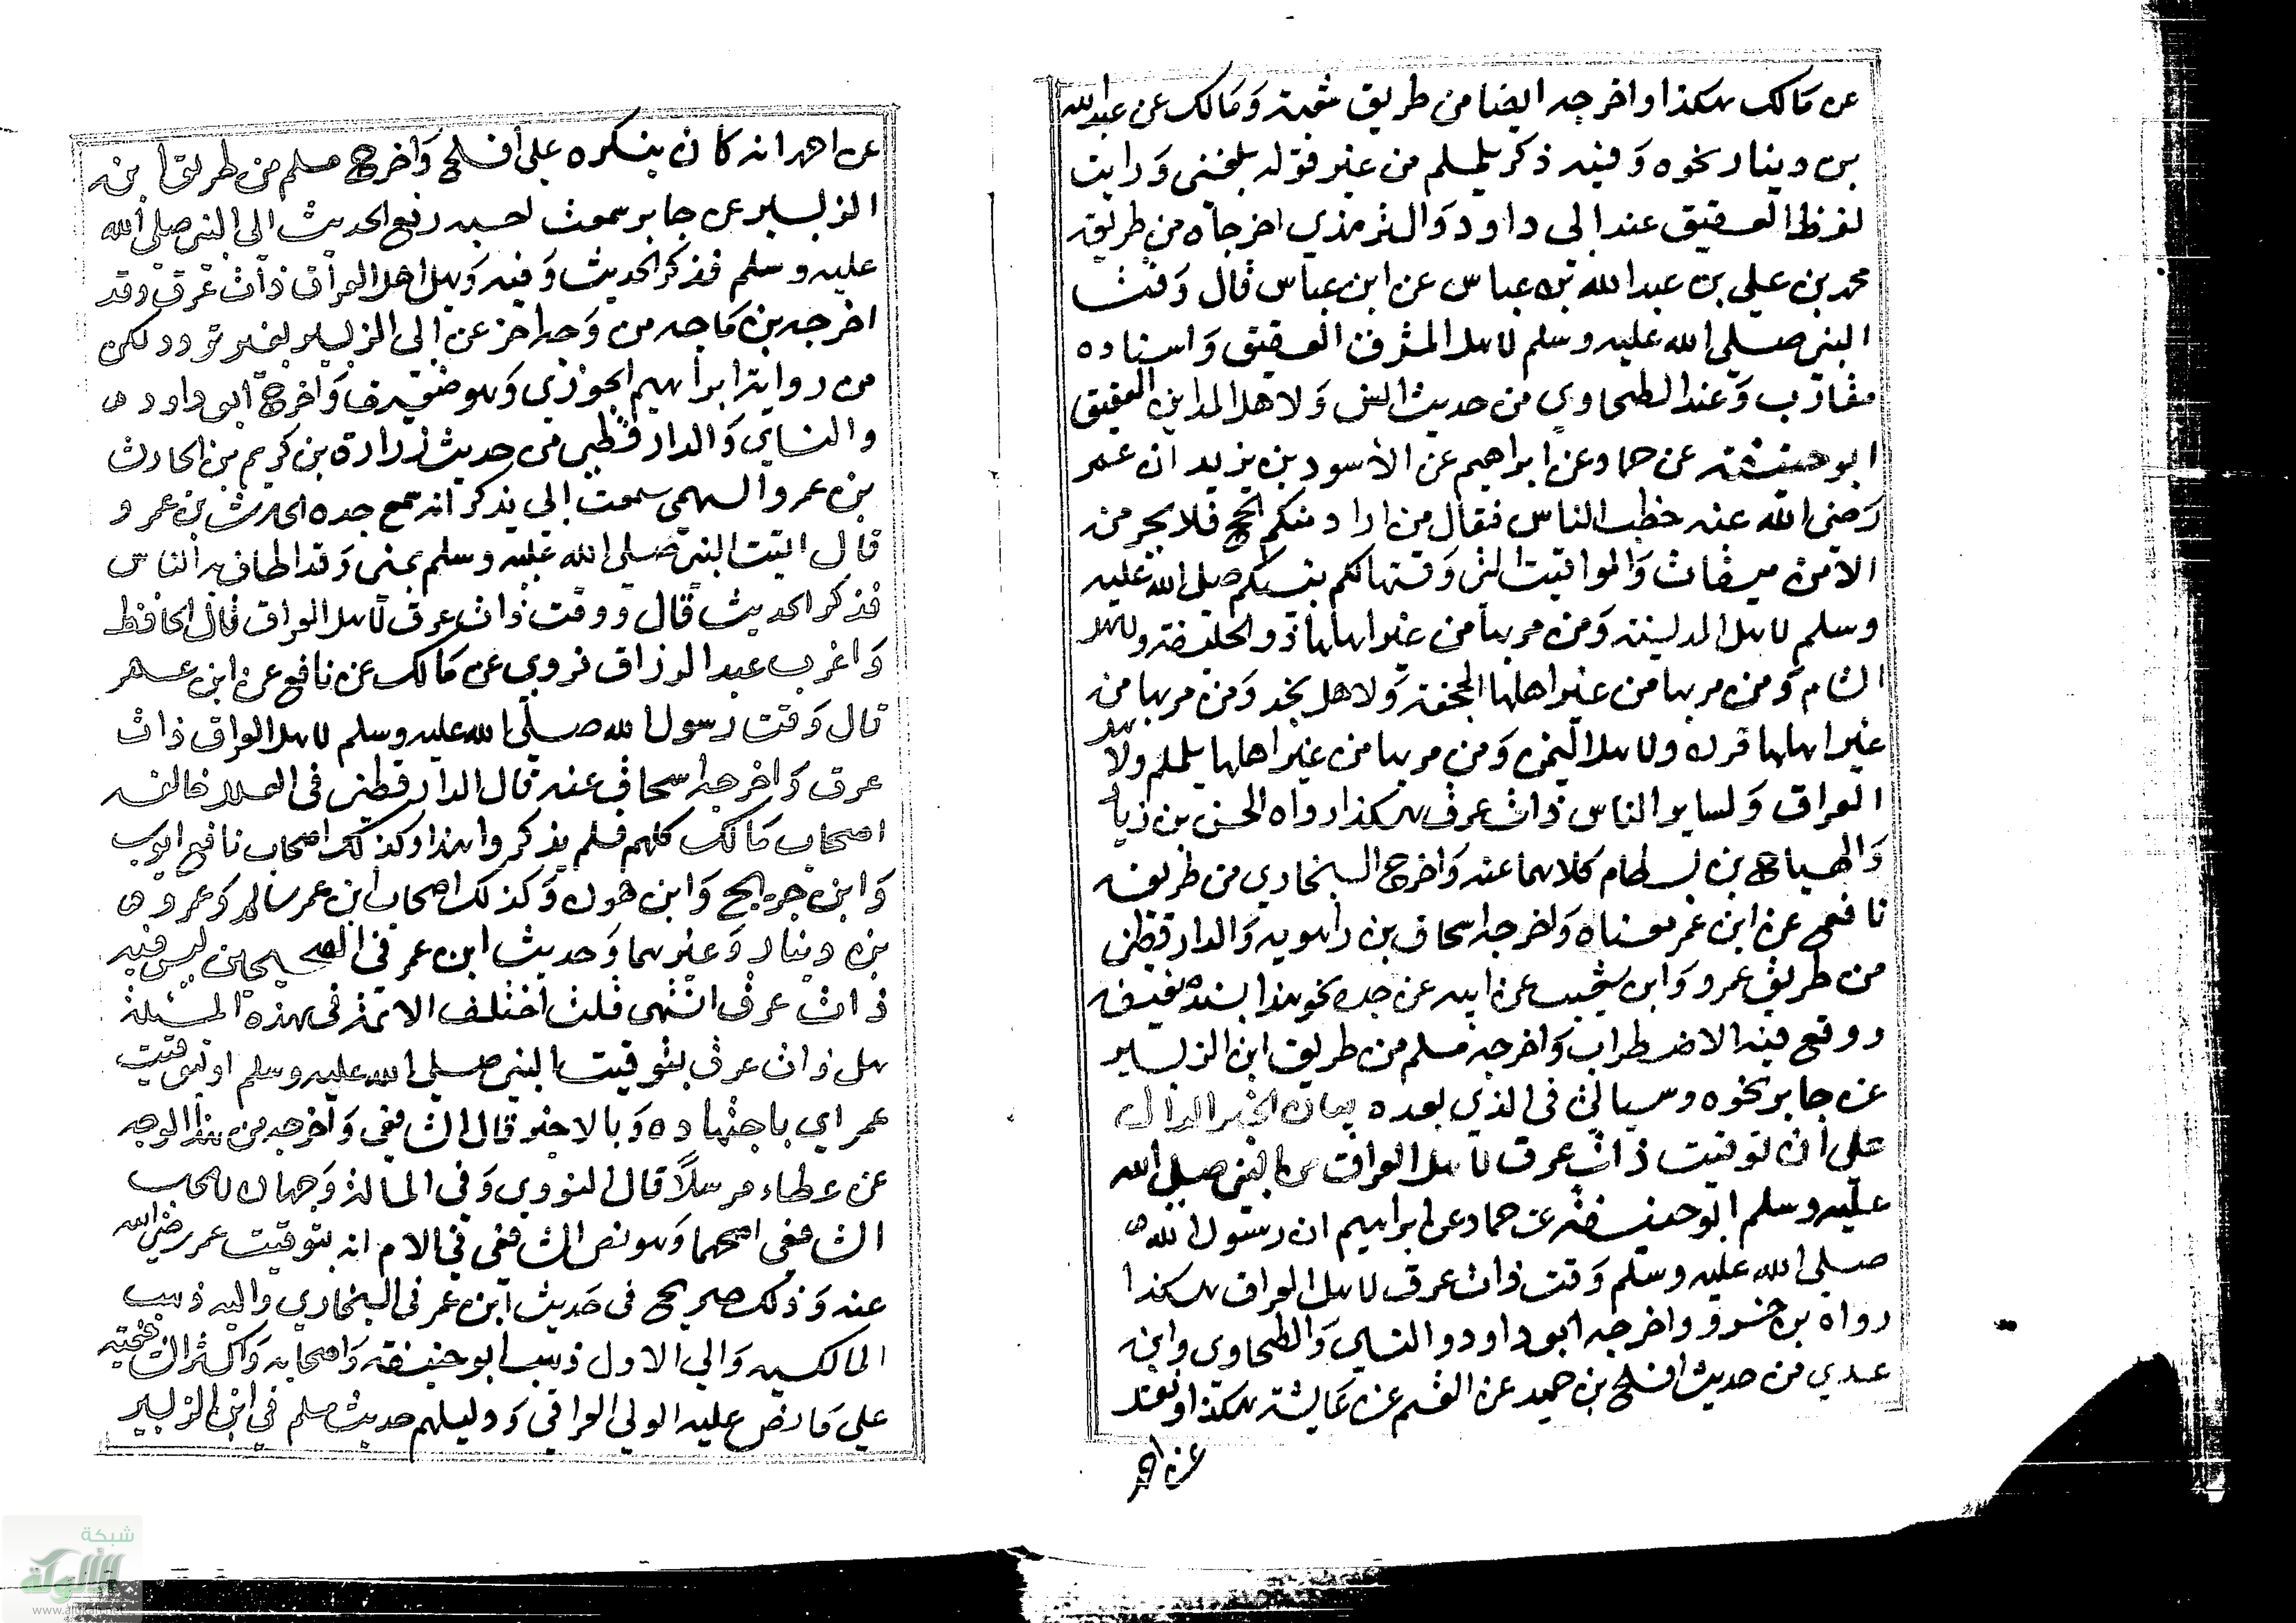 عن مالك هكذا واخرجه ايضا من طريق شعبة ومالك عن عبد الله
بن دينار نحوه وفيه ذكر يلملم من غير قوله بلغني ورايت
لفظ العقيق عند ابي داود والترمذي اخرجاه من طريق
محمد بن علي بن عبد الله بن عباس عن ابن عباس قال وقت
النبي صلى الله عليه وسلم لاهل المشرق العقيق واسناده
مقارب وعند الطحاوي من حديث انس ولاهل المداين العقيق
ابو حنيفة عن حماد عن ابراهيم عن الاسود بن يزيد ان عمر
رضي الله عنه خطب الناس فقال من اراد منكم الحج فلا يحرمن
الا من ميقات والمواقيت التي وقتها لكم نبيكم صلى الله عليه
وسلم لاهل المدينة ومن مر بها من غير اهلها ذو الحليفة ولاهل
الشام ومن مر بها من غير اهلها الجحفة ولاهل نجد ومن مر بها من
غير اهلها قرن ولاهل اليمن ومن مر بها من غير اهلها يلملم ولاهل
العراق ولساير الناس ذات عرق هكذا رواه الحسن بن زياد
والهياج بن بسطام كلاهما عنه واخرج البخاري من طريق
نافع عن ابن عمر معناه واخرجه اسحاق بن راهويه والدارقطني
من طريق عمرو وابن شعيب عن ابيه عن جده نحو هذا بسند ضعيف
ووقع فيه الاضطراب واخرجه مسلم من طريق ابن الزبير
عن جابر نحوه وسياتي في الذي بعده بيان الخبر الدال
على ان توقيت ذات عرق لاهل العراق من النبي صلى الله
عليه وسلم ابو حنيفة عن حماد عن ابراهيم ان رسول الله
صلى الله عليه وسلم وقت ذات عرق لاهل العراق هكذا
رواه بن خسرو واخرجه ابو داود والنساي والطحاوي وابن
عدي من حديث افلح بن حميد عن القسم عن عايشة هكذا ونقل
عن احمد
عن احمد انه كان ينكره على افلح واخرج مسلم من طريق ابن
الزبير عن جابر سمعت احسبه رفع الحديث الى النبي صلى الله
عليه وسلم فذكر الحديث وفيه ومهل اهل العراق ذات عرق وقد
اخرجه بن ماجه من وجه اخر عن ابي الزبير بغير تردد لكن
من رواية ابراهيم الجوزي وهو ضعيف واخرج ابو داود
والنساي والدارقطني من حديث زرارة بن كريم بن الحارث
بن عمرو السهمي سمعت ابي يذكر انه سمع جده الحارث بن عمرو
قال اتيت النبي صلى الله عليه وسلم بمنى وقد اطاف به الناس
فذكر الحديث قال ووقت ذات عرق لاهل العراق قال الحافظ
واغرب عبد الرزاق فروي عن مالك عن نافع عن ابن عمر
قال وقت رسول الله صلى الله عليه وسلم لاهل العراق ذات
عرق واخرجه اسحاق عنه قال الدارقطني في العلل خالفه
اصحاب مالك كلهم فلم يذكروا هذا وكذلك اصحاب نافع ايوب
وابن جريج وابن عون وكذلك اصحاب ابن عمر سالم وعمرو
بن دينار وغيرهما وحديث ابن عمر في الصحيحين ليس فيه
ذات عرق انتهى قلت اختلف الائمة في هذه المسئلة
هل ذات عرق بتوقيت النبي صلى الله عليه وسلم او بتوقيت
عمر اي باجتهاده وبالاخير قال الشافعي واخرجه من هذا الوجه
عن عطاء مرسلاً قال النووي وفي المسالة وجهان لاصحاب
الشافعي اصحهما وهو نص الشافعي في الام انه بتوقيت عمر رضي الله
عنه وذلك صريح في حديث ابن عمر في البخاري واليه ذهب
المالكيه والي الاول ذهب ابو حنيفة واصحابه واكثر الشافعيه
على ما نص عليه الولي العراقي ودليلهم حديث مسلم في ابن الزبير
شبكة
الألوكة
www.alukah.net